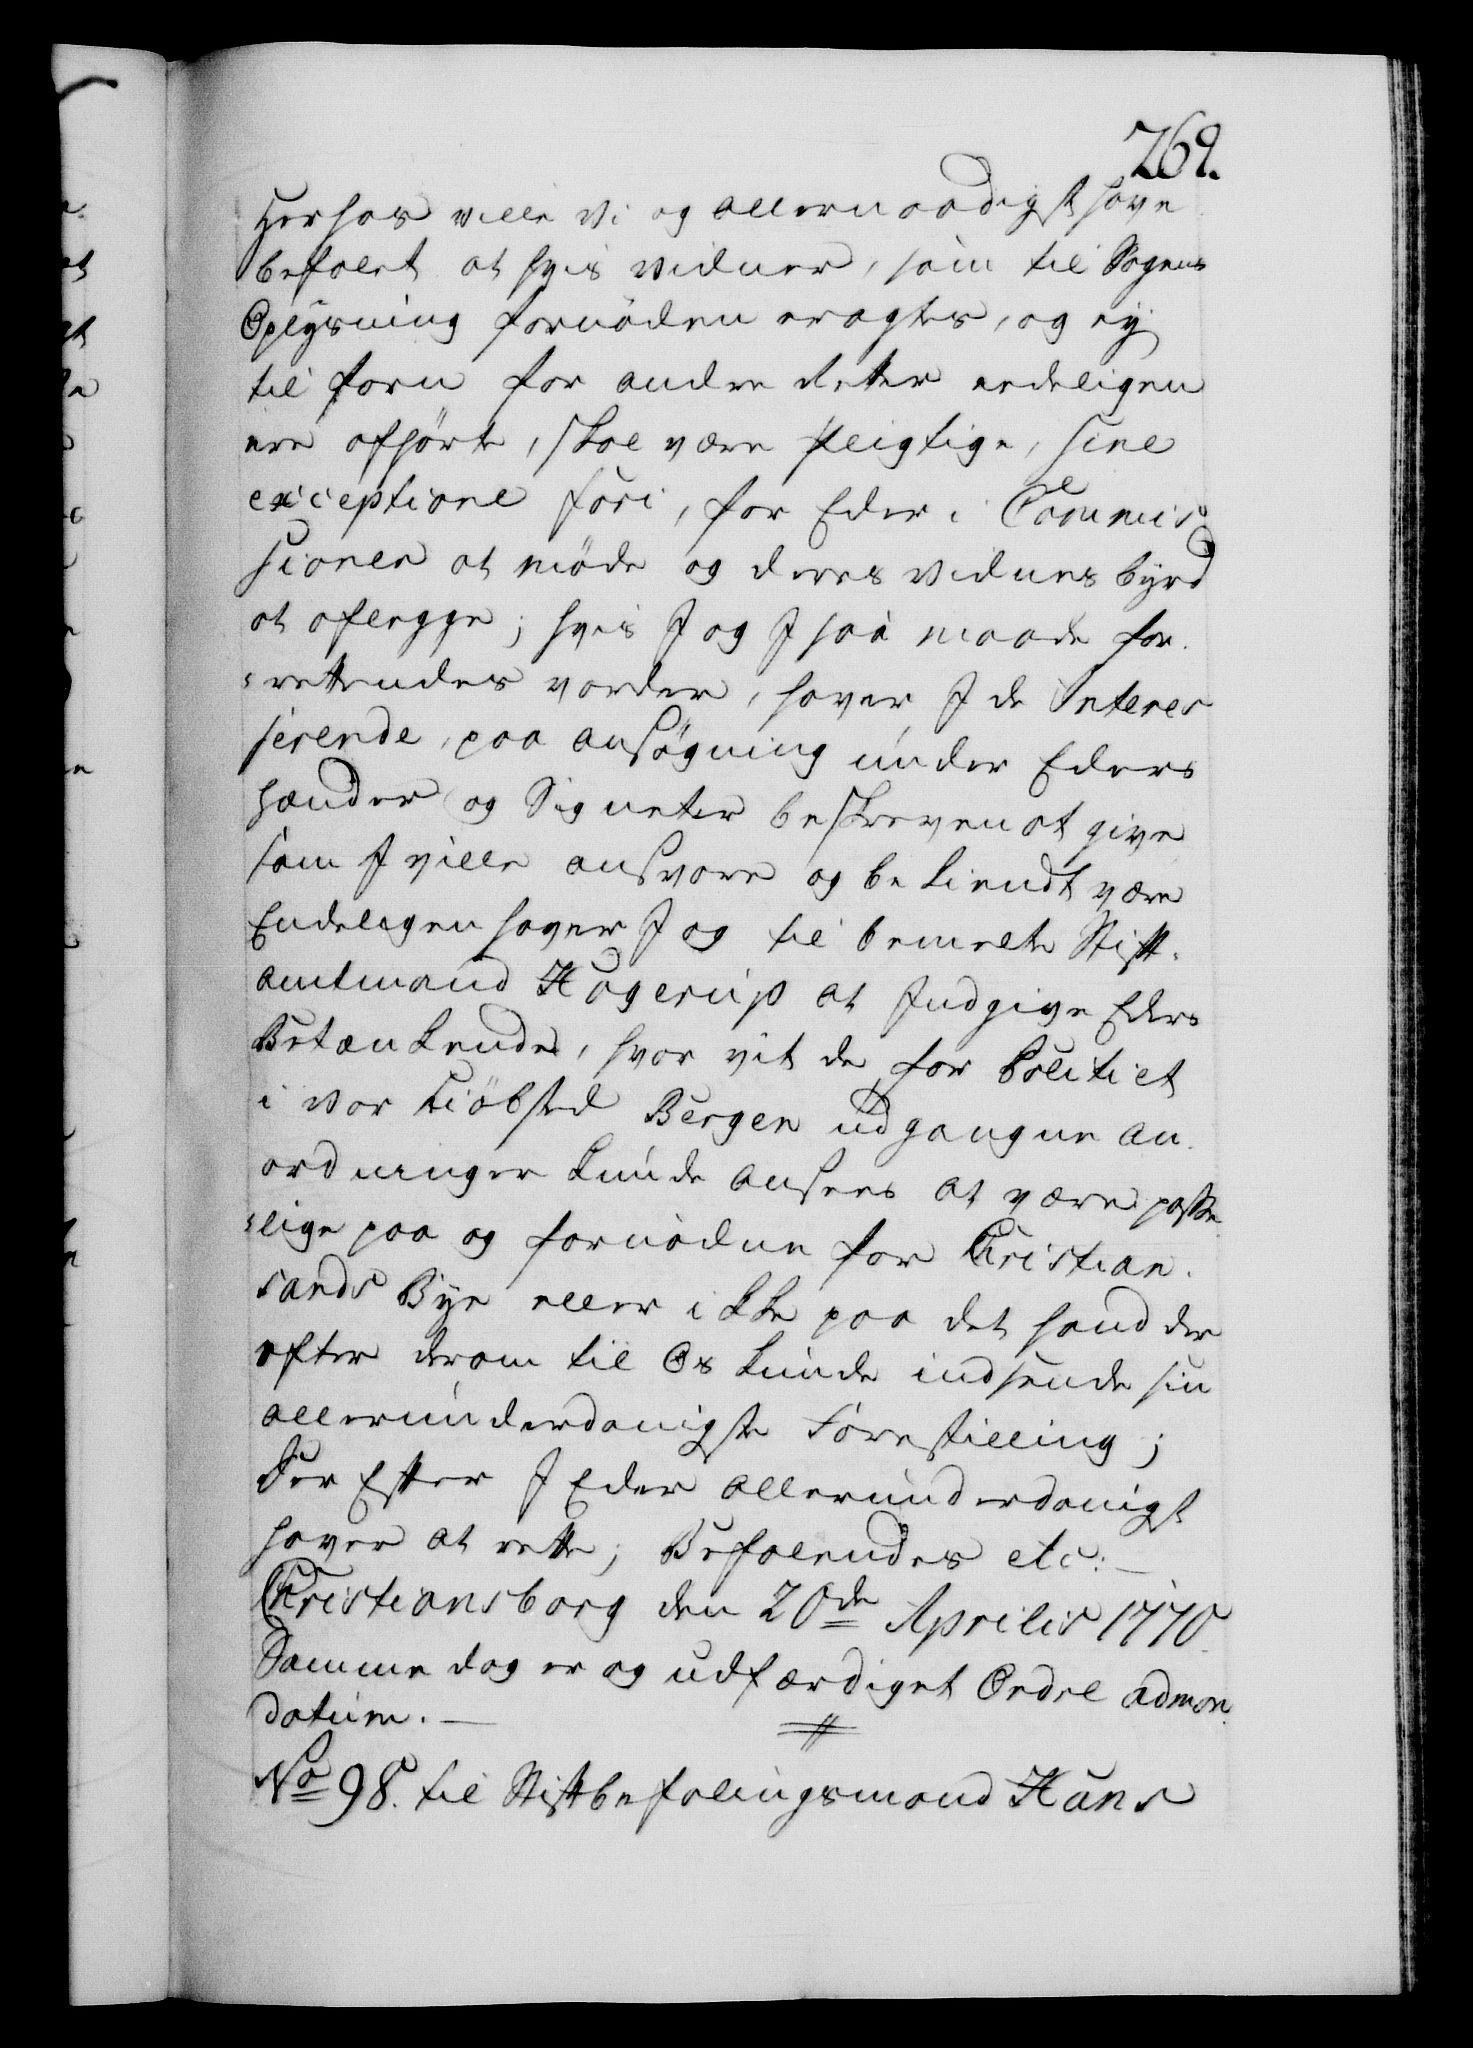 269.
Herhos ville Vi og allernaadigst have
befalet at hvis vidner, som til Sagens
Oplysning fornøden eragtes, og ej
til forn for andre Retter eedeligen
ere afhørte, skal være pligtige, sine
exceptione fori, for Eder i Commis
sionen at møde og deres vidnesbyrd
at aflegge; hvis I og I saa maade for.
rettendes vorder, haver I de Interes
serende, paa ansøgning under Eders
hænder og Signeter beskreven at give
som I ville ansvare og bekiendt være
Endeligen haver I og til bemelte Stift.
amtmand Hagerup at Indgive Eders
Betænkende, hvor vit de for Politiet
i vor Kiöbsted Bergen udgangne An.
ordninger kunde ansees at være passe
lige paa og fornødne for Christian.
sands Bye eller ikke paa det hand der
efter derom til Os kunde indsende sin
allerunderdanigste Forestilling;
Der Efter I Eder allerunderdanigst
haver at rette; Befalendes etc:
Christiansborg den 20de Aprilis 1770
Samme dag er og udfærdiget Ordre
datum.
No 98. til Stiftbefalingsmand Hans